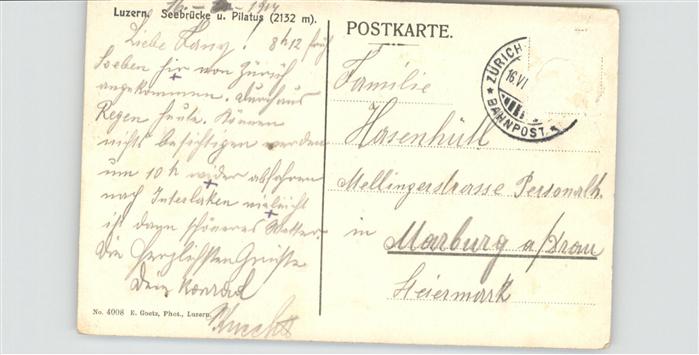 Luzern. Seebrücke u. Pilatus (2132 m).
16. 1914
Liebe Fany! 8h12 früh
Soeben hir von Zürich
angekommen. Durchaus
Regen heute. Können
nichts besichtigen werden
um 10h wider abfahren
nach Interlaken vieleicht
ist dann schöneres Wetter.
Die herzlichsten Grüsse
Dein Konrad
No. 4008 E. Goetz, Phot., Luzern.
POSTKARTE.
ZÜRICH
16 VI
BAHNPOST
Familie
Hasenhüll
Mellingerstrasse Personalh.
in Marburg a/Drau
Steiermark